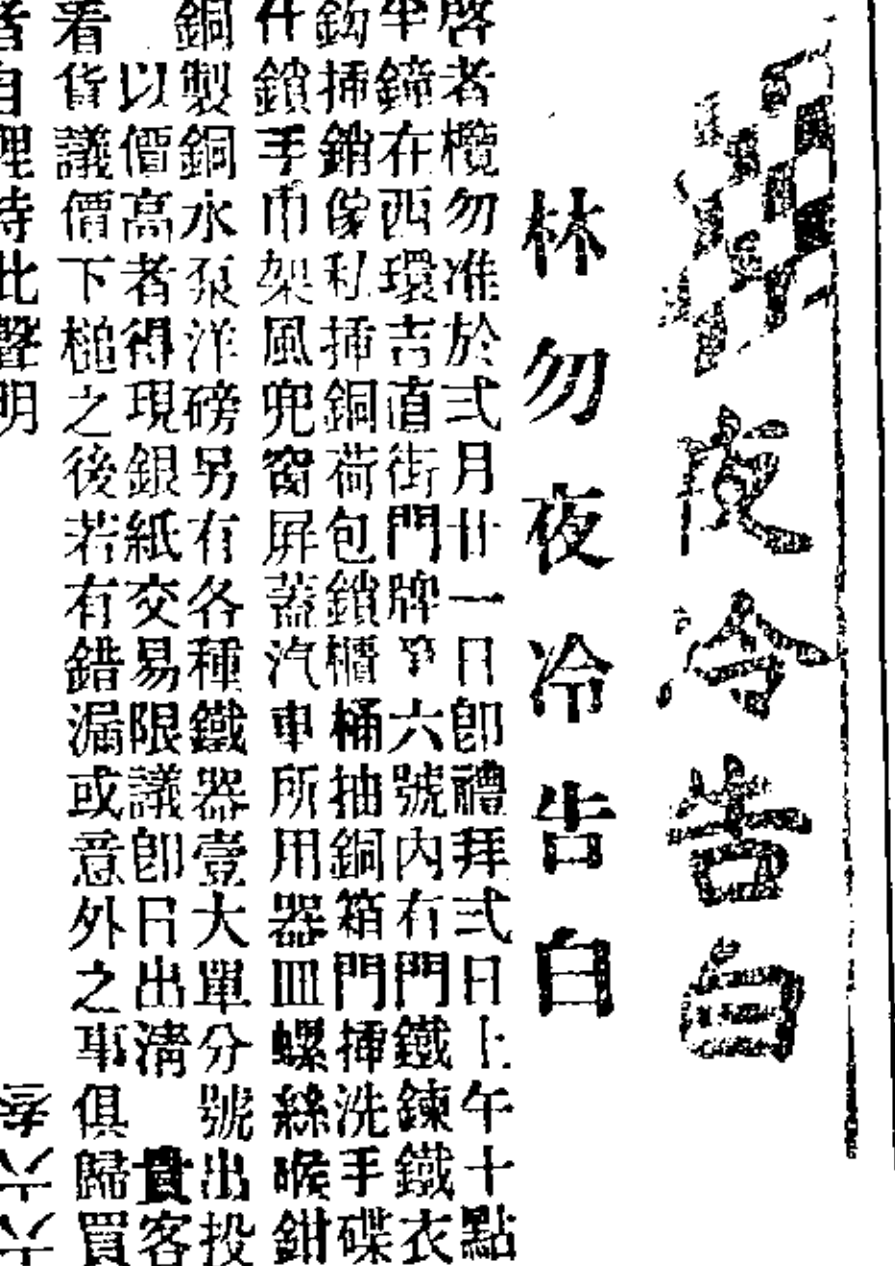 夜冷告白
林勿夜冷告白
啓者欖勿准於弍月廿一日卽禮拜弍日上午十點
半鐘在西環吉直街門牌第六號內有門鐵鍊鐵衣
鈎挿銷傢私挿銅荷包鎖櫃桶抽銅箱門挿洗手碟
什鎖手巾架風兜窗屛蓋汽車所用器皿螺絲喉鉗
銅製銅水泵洋磅另有各種鐵器壹大單分號出投
以價高者得現銀紙交易限議卽日出淸貴客
看貨議價下槌之後若有錯漏或意外之事俱歸買
者自理特此聲明 叁六六